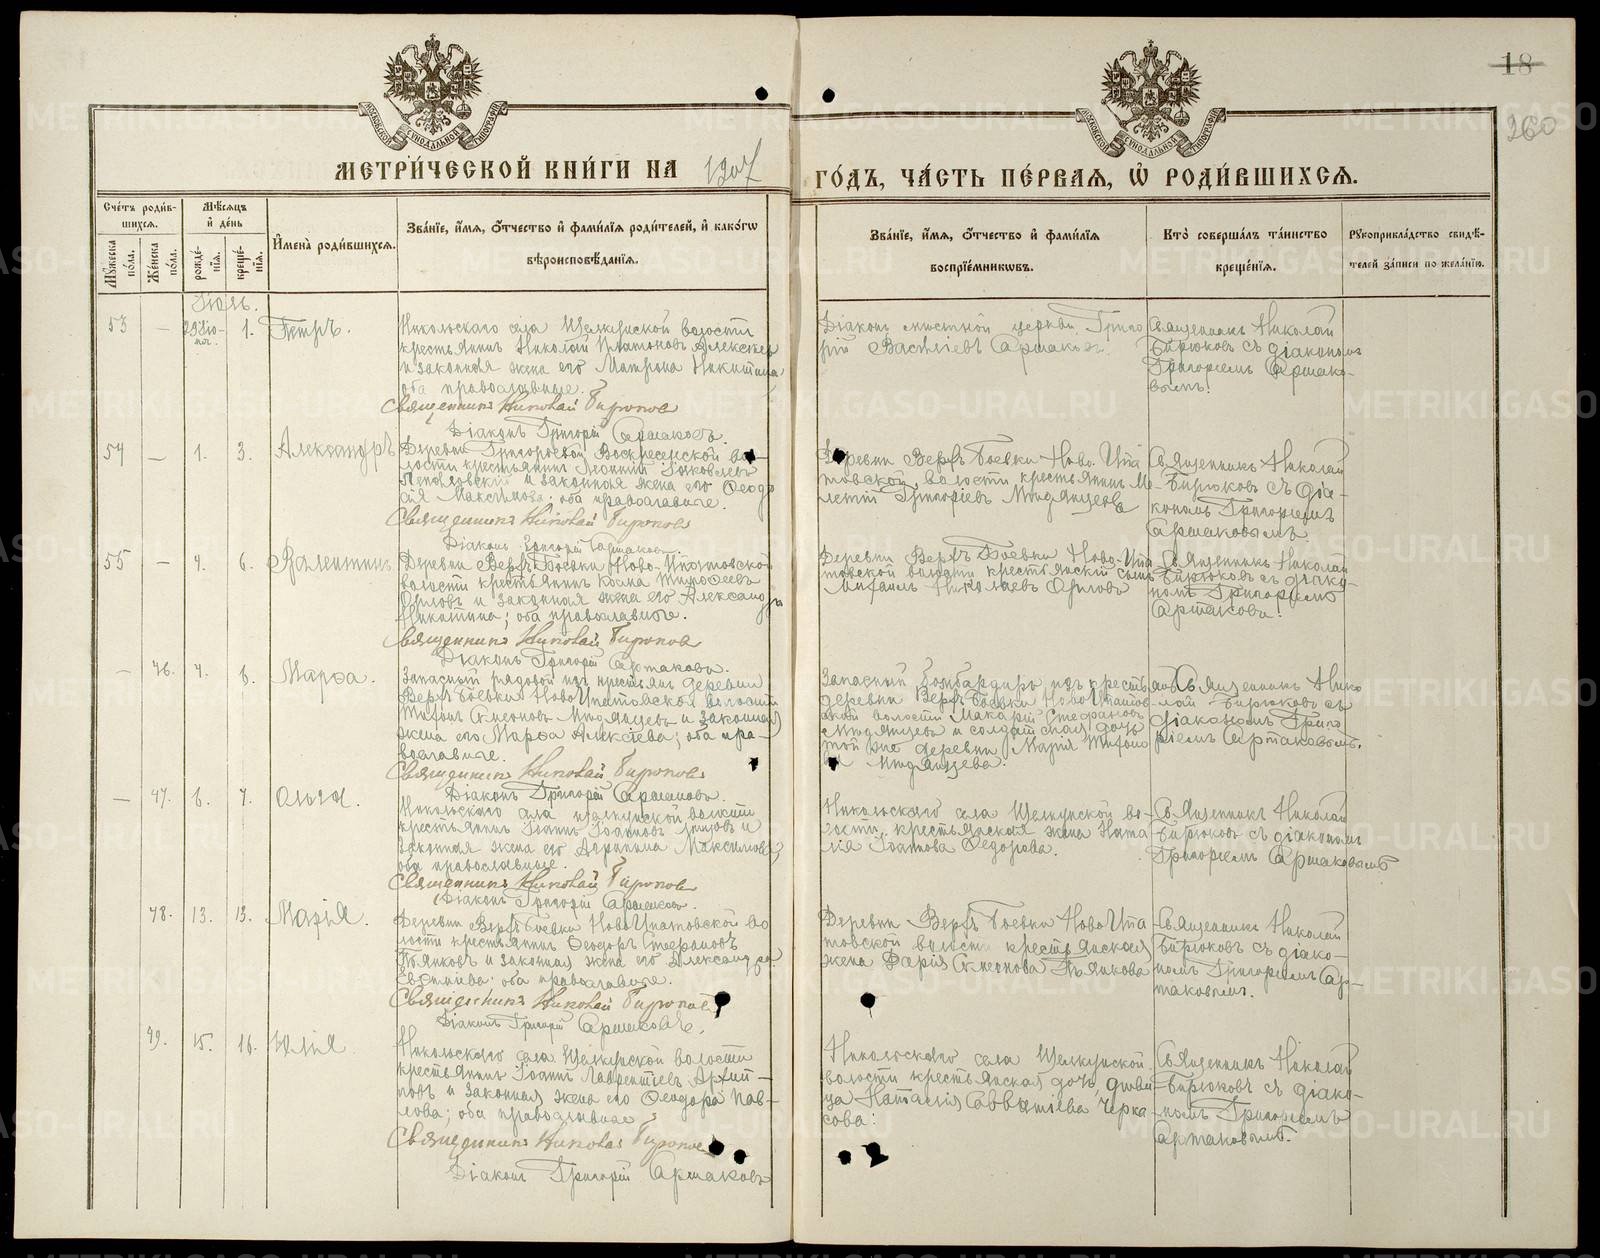 18
260
МЕТРИ́ЧЕСКОЙ КНИ́ГИ НА 1907 ГО́ДЪ, ЧА́СТЬ ПЕ́РВАЯ, Ѡ РОДИ́ВШИХСЯ.
Сче́тъ роди́вшихся.
Мꙋ́жеска по́ла.
Же́нска по́ла.
Мѣ́сяцъ и́ де́нь
рожде́нїя.
креще́нїя.
И́мена̀ роди́вшихся.
Зва́нїе, и́мя, о́тчество и́ фами́лїя роди́телей, и́ како́гѡ вѣроисповѣ́данїя.
Зва́нїе, и́мя, о́тчество и́ фами́лїя воспрїе́мникѡвъ.
Кто̀ соверша́лъ та́инство креще́нїя.
Рꙋкоприкла́дство свидѣ́телей за́писи по жела́нїю.
Іюль.
53 — 29 Іюня. 1. Петръ.
Никольскаго села Щелкунской волости
крестьянинъ Николай Платоновъ
и законная жена его Матрона Никитина
оба православные.
Священникъ Николай Бирюковъ
Діаконъ Григорій Сартаковъ.
Діаконъ мѣстной церкви Григо
рій Васильевъ Сартаковъ.
Священникъ Николай
Бирюковъ съ діакономъ
Григоріемъ Сартако-
вымъ.
54 — 1. 3. Александръ
Деревни Григорьевой Воскресенской во-
лости крестьянинъ Леонтій Яковлевъ
и законная жена его Феодо
сія Максимова; оба православные.
Священникъ Николай Бирюковъ
Діаконъ Григорій Сартаковъ.
Деревни Верхъ Боевки Ново-Ипа
товской волости крестьянинъ Ме-
летій Григоріевъ Мидянцевъ
Священникъ Николай
Бирюковъ съ діа-
кономъ Григоріемъ
Сартаковымъ.
55 — 4. 6. Валентинъ
Деревни Верхъ Боевки Ново-Ипатовской
волости крестьянинъ Косма Тимофеевъ
Орловъ и законная жена его Александра
Никитина; оба православные.
Священникъ Николай Бирюковъ
Діаконъ Григорій Сартаковъ.
Деревни Верхъ Боевки Ново-Ипа
товской волости крестьянскій сынъ
Михаилъ Николаевъ Орловъ
Священникъ Николай
Бирюковъ съ діако-
номъ Григоріемъ
Сартаковы.
— 46. 4. 6. Марѳа.
Запасный рядовой изъ крестьянъ деревни
Верхъ Боевки Ново Ипатовской волости
Тихонъ Симеоновъ Мидянцевъ и законная
жена его Марѳа Алексіева; оба пра-
вославные.
Священникъ Николай Бирюковъ
Діаконъ Григорій Сартаковъ.
Запасный бомбардиръ изъ крестьянъ
деревни Верхъ Боевки Ново Ипатов
ской волости Макарій Стефановъ
Мидянцевъ и солдатская дочь
той же деревни Марія Тихоно
ва Мидянцева.
Священникъ Нико
лай Бирюковъ съ
діакономъ Григо
ріемъ Сартаковымъ.
— 47. 6. 7. Ольга.
Никольскаго села Щелкунской волости
крестьянинъ Іоаннъ Іоанновъ и
законная жена его Агрипина Максимова;
оба православные.
Священникъ Николай Бирюковъ
Діаконъ Григорій Сартаковъ.
Никольскаго села Щелкунской во-
лости, крестьянская жена Ната
лія Іоаннова Ѳедорова.
Священникъ Николай
Бирюковъ съ діакономъ
Григоріемъ Сартаковымъ
48. 13. 13. Марія.
Деревни Верхъ Боевки Ново Ипатовской во
лости крестьянинъ Ѳеодоръ Стефановъ
Пьянковъ и законная жена его Александра
Евѳиміева; оба православные.
Священникъ Николай Бирюковъ
Діаконъ Григорій Сартаковъ.
Деревни Верхъ Боевки Ново Ипа
товской волости крестьянская
жена Дарія Симеонова Пьянкова
Священникъ Николай
Бирюковъ съ діако-
номъ Григоріемъ Сар-
таковымъ.
49. 15. 16. Юлія
Никольскаго села Щелкунской волости
крестьянинъ Іоаннъ Лаврентіевъ Архип-
повъ и законная жена его Ѳеодора Пав-
лова; оба православные
Священникъ Николай Бирюковъ
Діаконъ Григорій Сартаковъ
Никольскаго села Щелкунской
волости крестьянская дочь, дѣви
ца Наталія Савватіева Черка
сова:
Священникъ Николай
Бирюковъ съ діако-
номъ Григоріемъ
Сартаковымъ.